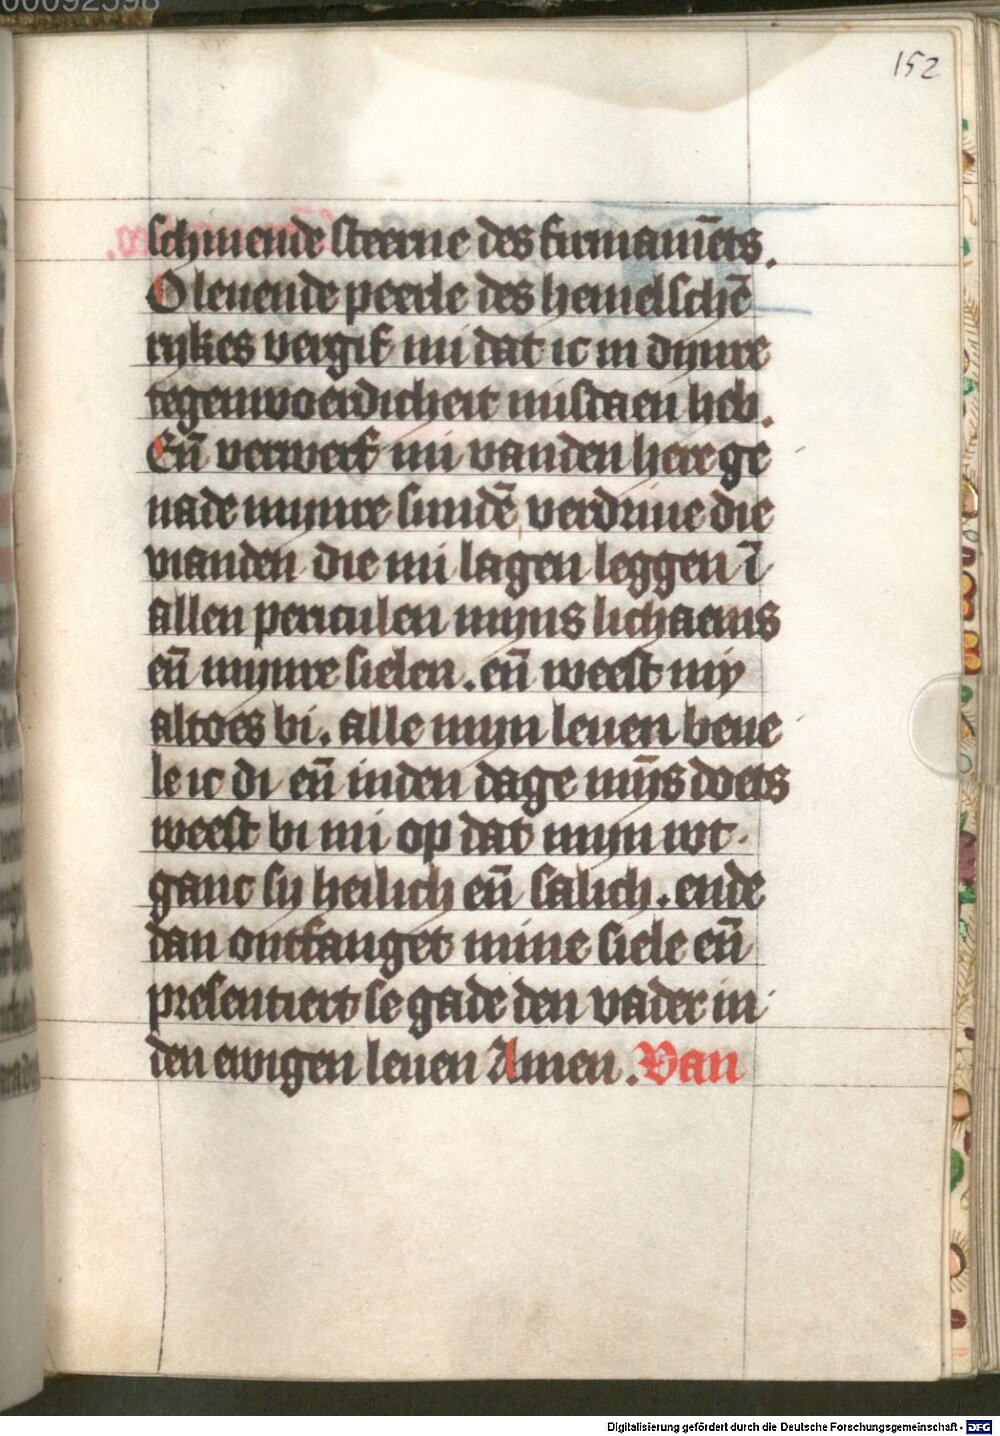 00092598
152
schinende steerne des firmamēts.
O leuende peerle des hemelschē
rykes vergif mi dat ic in dijnre
tegenwoerdicheit misdaen heb.
Eñ verwerf mi vanden here ge
nade mijnre sundē verdriue die
vianden die mi lagen leggen ī
allen periculen mijns lichaems
eñ mijnre sielen. eñ weest mÿ
altoes bi. alle mijn leuen beue
le ic di eñ inden dage mijs doets
weest bi mi op dat mijn wt
ganc sij heilich eñ salich. ende
dan ontfanget mine siele eñ
presentiert se gade den vader in
den ewigen leuen Amen. Van
Digitalisierung gefördert durch die Deutsche Forschungsgemeinschaft - DFG